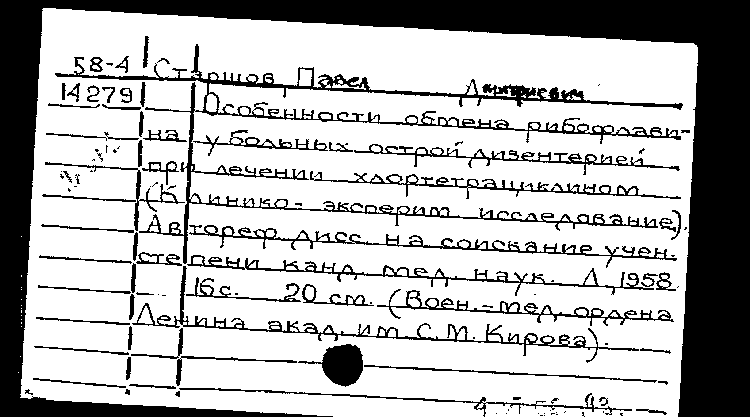 58-4 Старшов, Павел Дмитриевич
14279 Особенности обмена рибофлави-
на у больных острой дизентерией
при лечении хлортетрациклином
(Клинико- эксперим исследование).
Автореф. дисс. на соискание учен.
степени канд. мед. наук. Л., 1958
16с. 20 см. (Воен.-мед. ордена
Ленина акад. им С.М. Кирова).